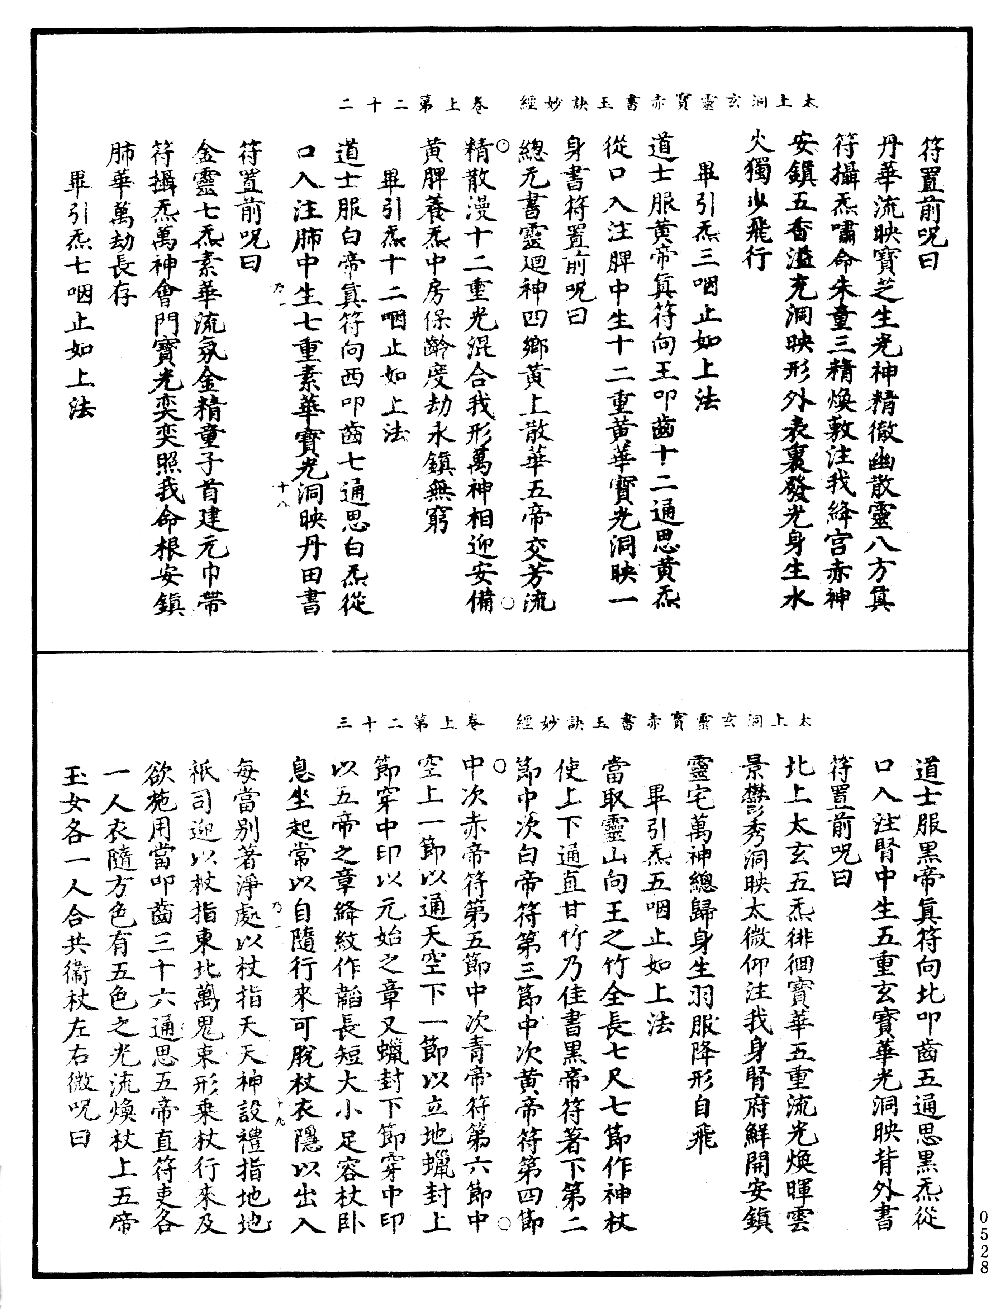 太上洞玄靈寶赤書玉訣妙經　卷上第二十二
符置前呪曰
丹華流映寶芝生光神精徹幽散靈八方真
符攝炁嘯命朱童三精煥敷注我絳宮赤神
安鎮五香溢充洞映形外表裏發光身生水
火獨步飛行
畢引炁三咽止如上法
道士服黃帝真符向王叩齒十二通思黃炁
從口入注脾中生十二重黃華寶光洞映一
身書符置前呪曰
總元書靈迴神四鄉黃上散華五帝交芳流
精散漫十二重光混合我形萬神相迎安備
黃脾養炁中房保齡度劫永鎮無窮
畢引炁十二咽止如上法
道士服白帝真符向西叩齒七通思白炁從
口入注肺中生七重素華寶光洞映丹田書
符置前呪曰
金靈七炁素華流氛金精童子首建元巾帶
符攝炁萬神會門寶光奕奕照我命根安鎮
肺華萬劫長存
畢引炁七咽止如上法
太上洞玄靈寶赤書玉訣妙經　卷上第二十三
道士服黑帝真符向北叩齒五通思黑炁從
口入注腎中生五重玄寶華光洞映背外書
符置前呪曰
北上太玄五炁徘徊寶華五重流光煥暉雲
景鬱秀洞映太微仰注我身腎府鮮開安鎮
靈宅萬神總歸身生羽服降形自飛
畢引炁五咽止如上法
當取靈山向王之竹全長七尺七節作神杖
使上下通直甘竹乃佳書黑帝符著下第二
節中次白帝符第三節中次黃帝符第四節
中次赤帝符第五節中次青帝符第六節中
空上一節以通天空下一節以立地蠟封上
節穿中印以元始之章又蠟封下節穿中印
以五帝之章絳紋作韜長短大小足容杖臥
息坐起常以自隨行來可脫杖衣隱以出入
每當別著淨處以杖指天天神設禮指地地
祇司迎以杖指東北萬鬼束形乘杖行來及
欲施用當叩齒三十六通思五帝直符吏各
一人衣隨方色有五色之光流煥杖上五帝
玉女各一人合共衞杖左右微呪曰
0528